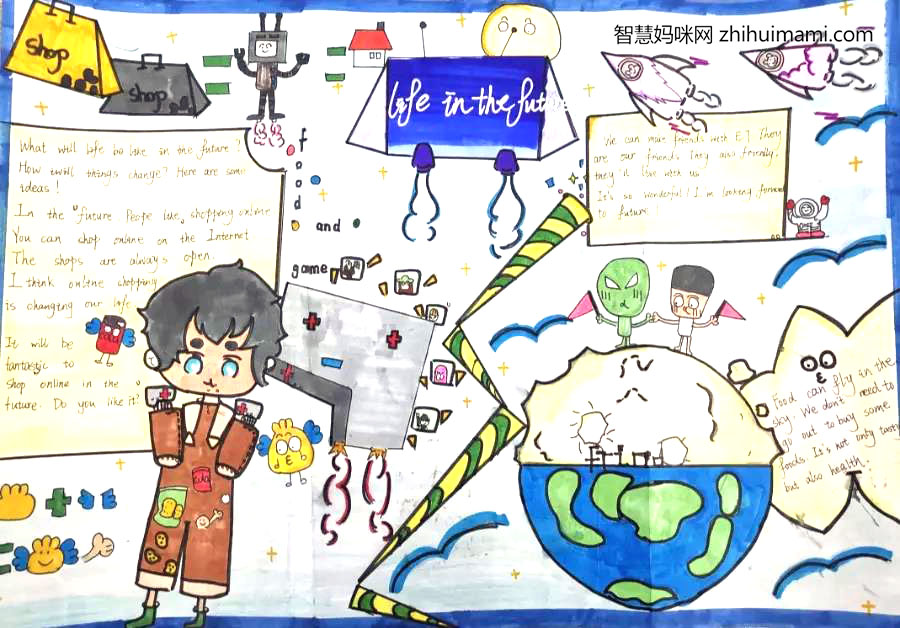 智慧妈咪网 zhihuimami.com
shop
shop
life in the future
What will life be like in the future?
How will things change? Here are some
ideas!
In the future Peope like shopping online
You can shop online on the Internet
The shops are always open.
I think online shopping
is changing our life
It will be
fantastic to
shop online in the
future. Do you like it?
food
and
game
We can make friends with ET. They
are our friends. They are friendly.
they live with us.
It's so wonderful! I'm looking forward
to future!
Food can fly in the
sky. We don't need to
go out to buy some
foods. It's not only tasty
but also health.